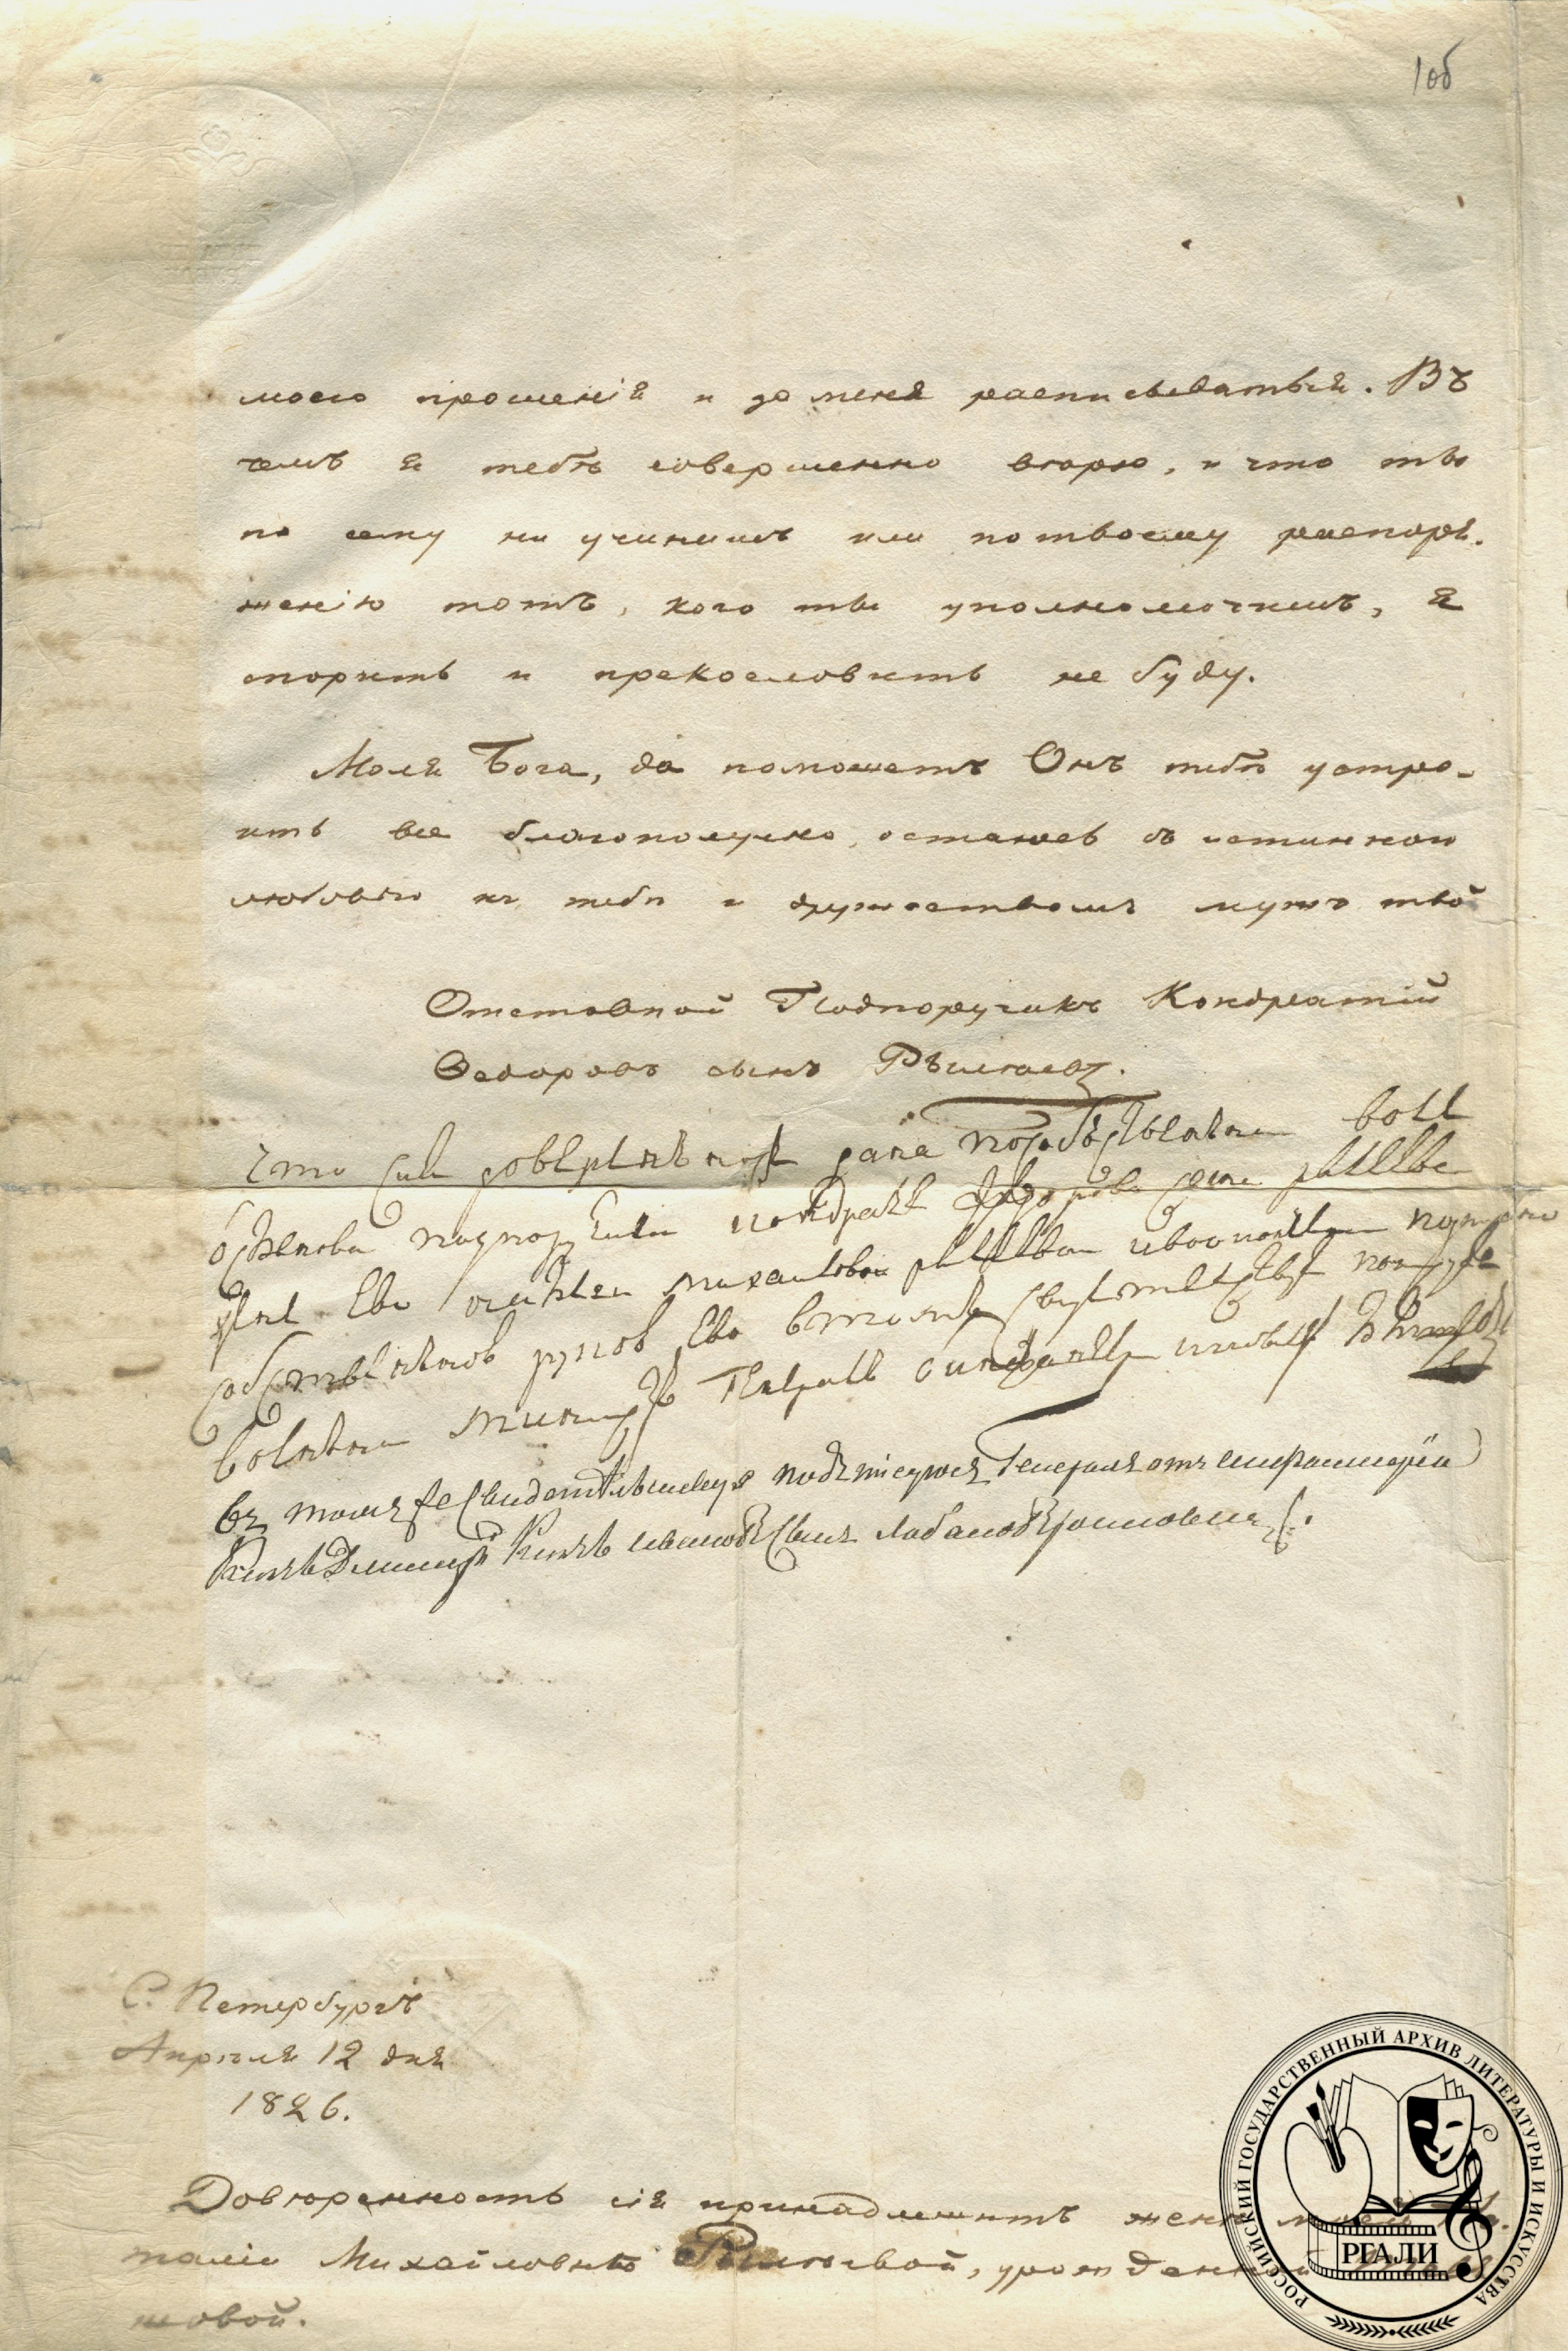 1об
моего прошенія и за меня расписываться. Въ
чемъ я тебѣ совершенно вѣрю, и что ты
по сему ни учинишъ или по твоему распоря-
женію тотъ, кого ты уполномочишъ, я
спорить и прекословить не буду.
Моля Бога, да поможетъ Онъ тебѣ устро-
ить все благополучно, остаюсь съ истинною
любовью къ тебѣ и дружествомъ мужъ твой
Отставной Подпоручикъ Кондратій
Ѳедоровъ сынъ Рылѣевъ.
что сия доверенность дана
подпорутчика кондратя федорова сына рылеева
жене ево михаиловой рылеевой
собственною рукою ево в том
военный министр Генерал
въ томъ же свидетельствуя подписуюсь Генералъ отъ инфантеріи
Князь Дмитрій Князь Ивановъ сынъ Лобановъ Ростовский
С. Петербургъ
Апрѣля 12 дня
1826.
Довѣренность сія принадлежитъ женѣ моей На-
таліи Михайловнѣ Рылѣевой, урожденной
шовой.
РОССИЙСКИЙ ГОСУДАРСТВЕННЫЙ АРХИВ ЛИТЕРАТУРЫ И ИСКУССТВА
РГАЛИ